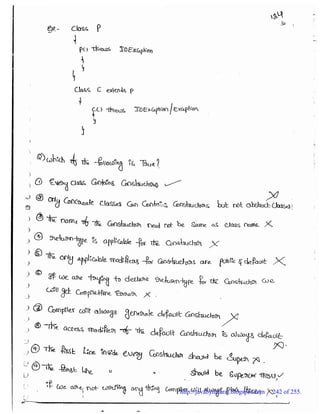 Ex:- Class P
{
P() throws IOException
{
}
}
Class C extends P
{
C() throws IOException/Exception
{
}
Q) which of the following is True?
① Every class Contains Constructors ✓
② only Concreate classes can Contain Constructors but not abstract classes X
③ The name of the Constructor need not be Same as class name X
④ return-type is applicable for the Constructor X
⑤ The only applicable modifiers for Constructors are public & default X
⑥ If we are trying to declare return type for the Constructor we
will get CompileTime Error X
⑦ Compiler will always generate default Constructor X
⑧ The access modifier of the default Constructor is always default
X
⑨ The first line inside every Constructor should be Super X
⑩ The first line " " should be Super or this() ✓
if we are not writing any thing compiler will always place
http://javabynataraj.blogspot.com 242 of 255.